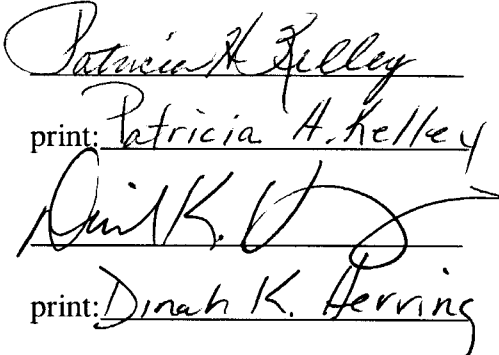 Patricia H Kelley
print: Patricia H. Kelley
K.
print: Dinah K. Herring